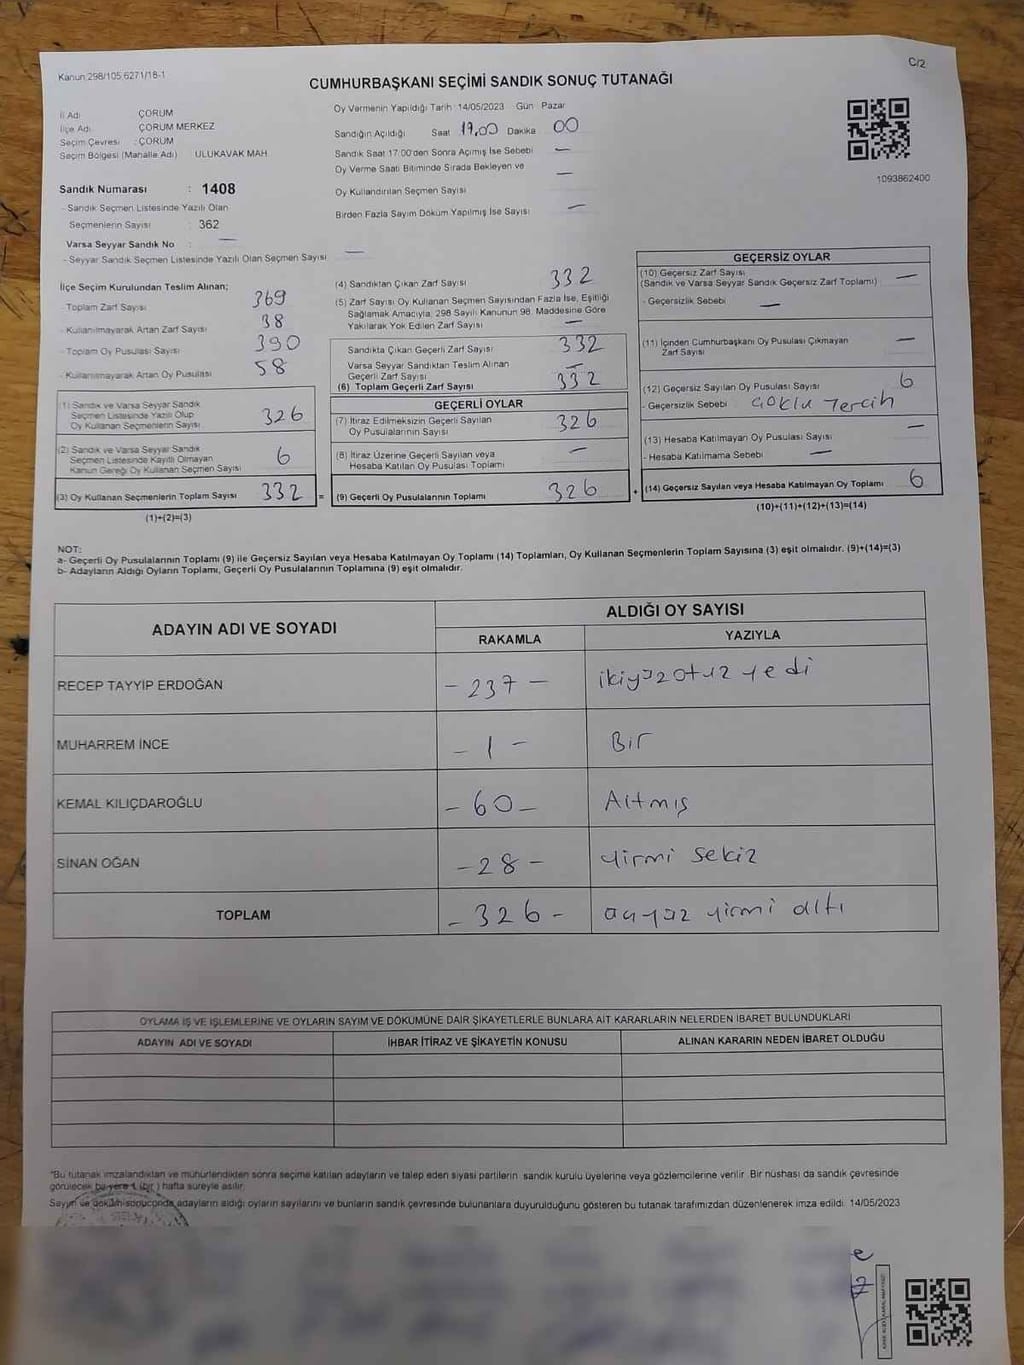 Kanun 298/105 6271/18-1
C/2
CUMHURBAŞKANI SEÇİMİ SANDIK SONUÇ TUTANAĞI
İl Adı ÇORUM
İlçe Adı ÇORUM MERKEZ
Seçim Çevresi : ÇORUM
Seçim Bölgesi (Mahalle Adı) ULUKAVAK MAH
Sandık Numarası : 1408
- Sandık Seçmen Listesinde Yazılı Olan
Seçmenlerin Sayısı : 362
Varsa Seyyar Sandık No : —
- Seyyar Sandık Seçmen Listesinde Yazılı Olan Seçmen Sayısı —
Oy Vermenin Yapıldığı Tarih :14/05/2023 Gün Pazar
Sandığın Açıldığı Saat 17,00 Dakika 00
Sandık Saat 17:00'den Sonra Açımış İse Sebebi —
Oy Verme Saati Bitiminde Sırada Bekleyen ve
Oy Kullandırılan Seçmen Sayısı —
Birden Fazla Sayım Döküm Yapılmış İse Sayısı —
1093862400
İlçe Seçim Kurulundan Teslim Alınan;
- Toplam Zarf Sayısı 369
- Kullanılmayarak Artan Zarf Sayısı 38
- Toplam Oy Pusulası Sayısı 390
- Kullanılmayarak Artan Oy Pusulası 58
(1) Sandık ve Varsa Seyyar Sandık
Seçmen Listesinde Yazılı Olup
Oy Kullanan Seçmenlerin Sayısı 326
(2) Sandık ve Varsa Seyyar Sandık
Seçmen Listesinde Kayıtlı Olmayan
Kanun Gereği Oy Kullanan Seçmen Sayısı 6
(3) Oy Kullanan Seçmenlerin Toplam Sayısı 332 =
(1)+(2)=(3)
(4) Sandıktan Çıkan Zarf Sayısı 332
(5) Zarf Sayısı Oy Kullanan Seçmen Sayısından Fazla İse, Eşitliği
Sağlamak Amacıyla, 298 Sayılı Kanunun 98. Maddesine Göre
Yakılarak Yok Edilen Zarf Sayısı —
Sandıkta Çıkan Geçerli Zarf Sayısı 332
Varsa Seyyar Sandıktan Teslim Alınan
Geçerli Zarf Sayısı —
(6) Toplam Geçerli Zarf Sayısı 332
GEÇERLİ OYLAR
(7) İtiraz Edilmeksizin Geçerli Sayılan
Oy Pusulalarının Sayısı 326
(8) İtiraz Üzerine Geçerli Sayılan veya
Hesaba Katılan Oy Pusulası Toplamı —
(9) Geçerli Oy Pusulalarının Toplamı 326 +
GEÇERSİZ OYLAR
(10) Geçersiz Zarf Sayısı —
(Sandık ve Varsa Seyyar Sandık Geçersiz Zarf Toplamı)
- Geçersizlik Sebebi —
(11) İçinden Cumhurbaşkanı Oy Pusulası Çıkmayan —
Zarf Sayısı
(12) Geçersiz Sayılan Oy Pusulası Sayısı 6
- Geçersizlik Sebebi çoklu Tercih
(13) Hesaba Katılmayan Oy Pusulası Sayısı —
- Hesaba Katılmama Sebebi —
(14) Geçersiz Sayılan veya Hesaba Katılmayan Oy Toplamı 6
(10)+(11)+(12)+(13)=(14)
NOT:
a- Geçerli Oy Pusulalarının Toplamı (9) ile Geçersiz Sayılan veya Hesaba Katılmayan Oy Toplamı (14) Toplamları, Oy Kullanan Seçmenlerin Toplam Sayısına (3) eşit olmalıdır. (9)+(14)=(3)
b- Adayların Aldığı Oyların Toplamı, Geçerli Oy Pusulalarının Toplamına (9) eşit olmalıdır.
ADAYIN ADI VE SOYADI ALDIĞI OY SAYISI
RAKAMLA YAZIYLA
RECEP TAYYİP ERDOĞAN - 237 - ikiyüzotuz yedi
MUHARREM İNCE - 1 - Bir
KEMAL KILIÇDAROĞLU - 60 - Altmış
SİNAN OĞAN - 28 - yirmi sekiz
TOPLAM - 326 - üçyüz yirmi altı
OYLAMA İŞ VE İŞLEMLERİNE VE OYLARIN SAYIM VE DÖKÜMÜNE DAİR ŞİKAYETLERLE BUNLARA AİT KARARLARIN NELERDEN İBARET BULUNDUKLARI
ADAYIN ADI VE SOYADI İHBAR İTİRAZ VE ŞİKAYETİN KONUSU ALINAN KARARIN NEDEN İBARET OLDUĞU
*Bu tutanak imzalandıktan ve mühürlendikten sonra seçime katılan adayların ve talep eden siyasi partilerin sandık kurulu üyelerine veya gözlemcilerine verilir. Bir nüshası da sandık çevresinde
görülecek bir yere 1 (bir) hafta süreyle asılır.
Sayım ve döküm sonucunda adayların aldığı oyların sayılarını ve bunların sandık çevresinde bulunanlara duyurulduğunu gösteren bu tutanak tarafımızdan düzenlenerek imza edildi. 14/05/2023